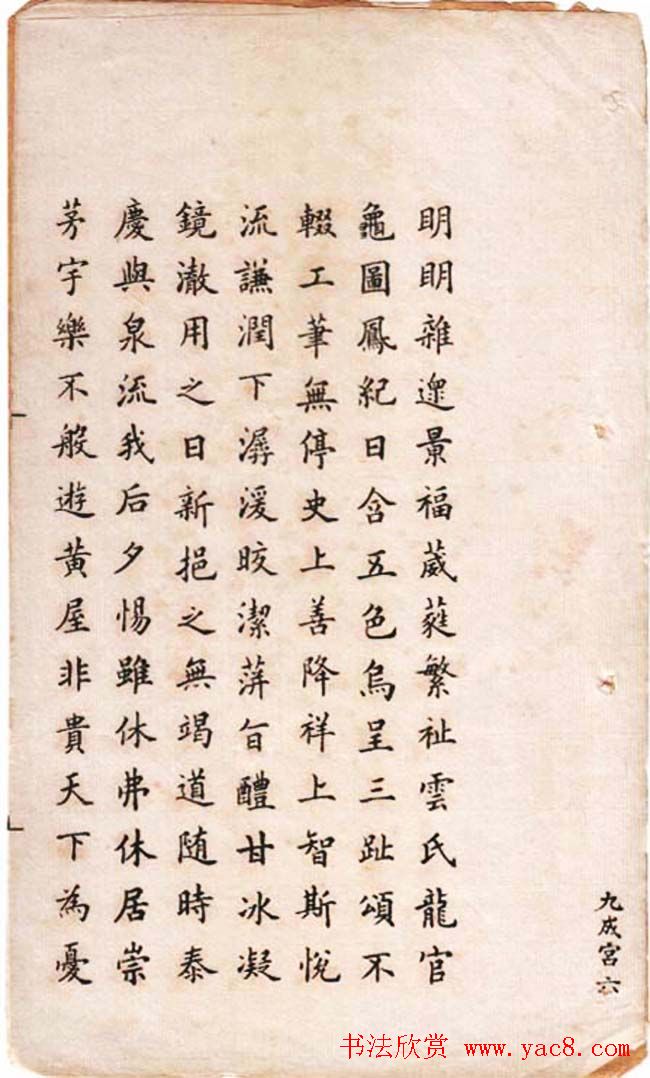 明明雜遝景福葳蕤繁祉雲氏龍官
龜圖鳳紀日含五色烏呈三趾頌不
輟工筆無停史上善降祥上智斯悅
流謙潤下潺湲皎潔蓱旨醴甘冰凝
鏡澈用之日新挹之無竭道随時泰
慶與泉流我后夕惕雖休弗休居崇
茅宇樂不般遊黃屋非貴天下為憂
九成宮六
书法欣赏 www.yac8.com